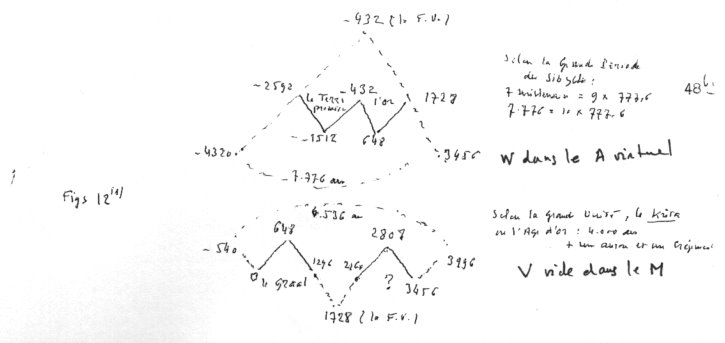 -432 (le F.V.)
-2592
-432
1728
la Terre
promise
l'or
-1512
648
-4320
3456
7.776 ans
Selon la Grande Période
des Sibylles :
7 = 9 x 777,6
7.776 = 10 x 777,6
48
W dans le A virtuel
Figs 12
6.536 ans
-540
648
2807
3996
0
le Graal
1296
2160
?
3456
1728 (le F.V.)
Selon la Grande Unité, le Krita
ou l'Age d'or : 4.000 ans
+ un auron et un
V vide dans le M